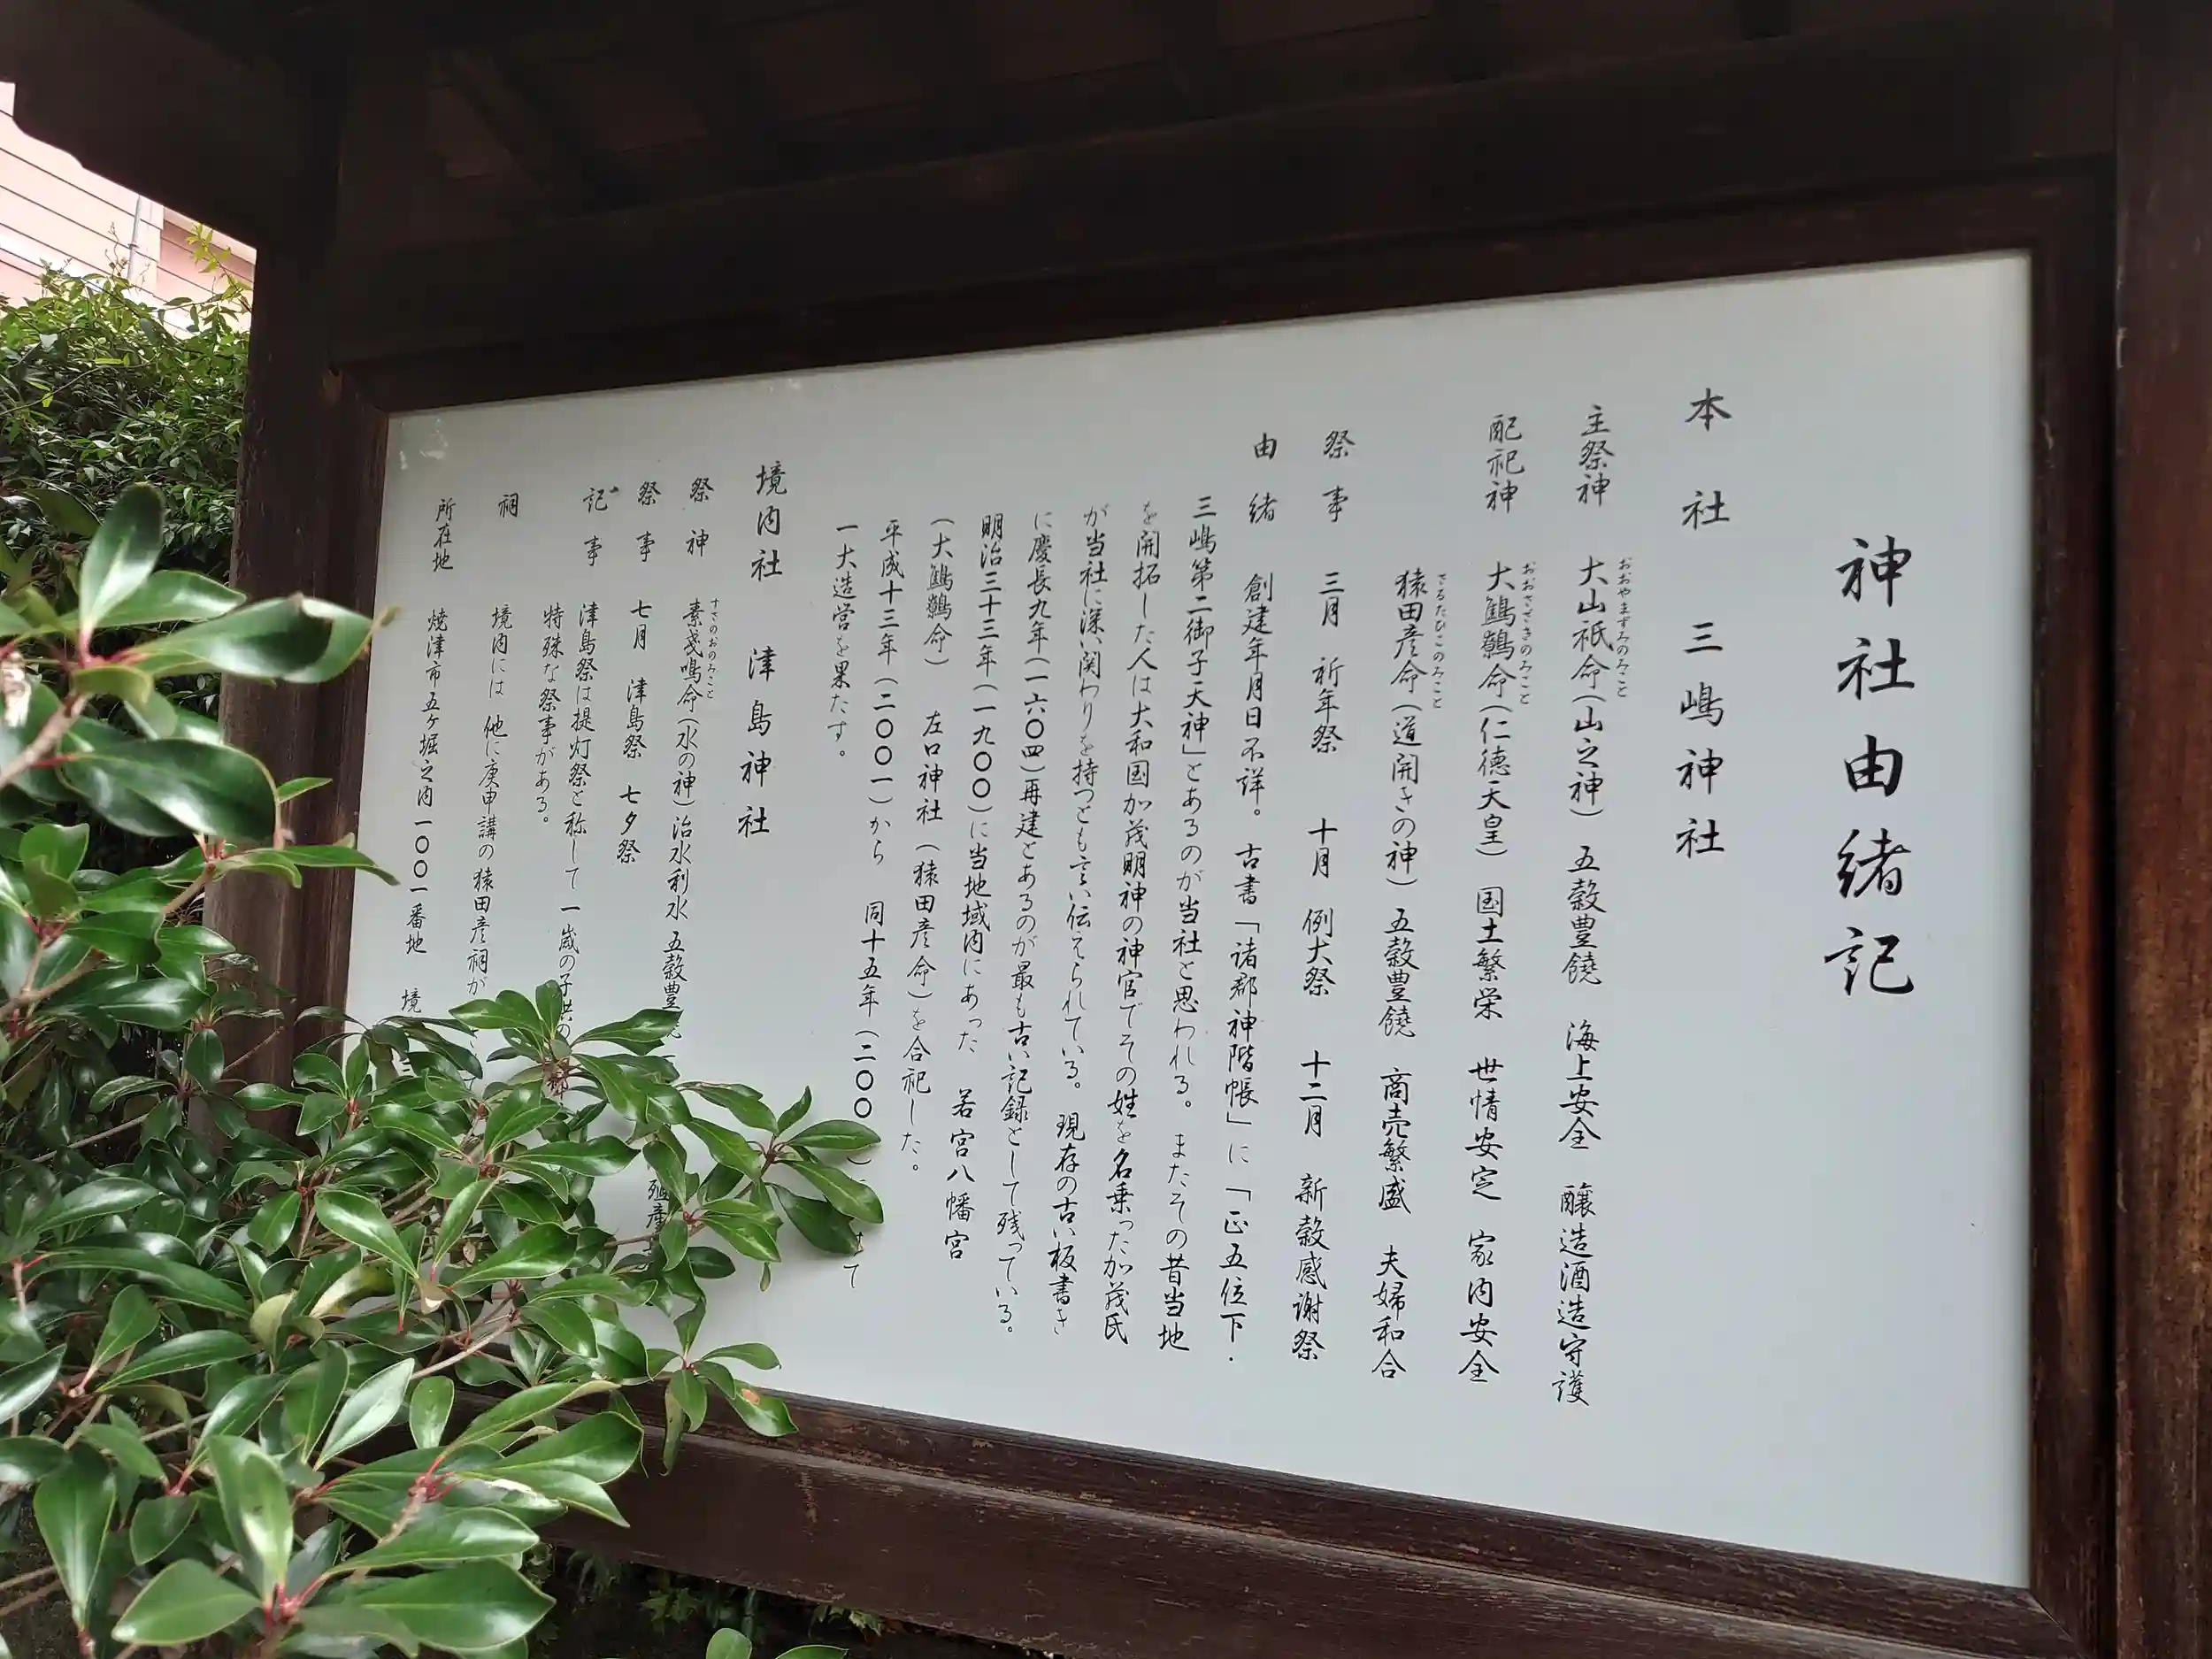 神社由緒記
本社 三嶋神社
主祭神 大山祇命(山之神) 五穀豊饒 海上安全 醸造酒造守護
おおやまずみのみこと
配祀神 大鷦鷯命(仁徳天皇) 国土繁栄 世情安定 家内安全
おおささきのみこと
猿田彦命(道開きの神) 五穀豊饒 商売繁盛 夫婦和合
さるたひこのみこと
祭事 三月 祈年祭 十月 例大祭 十二月 新穀感謝祭
由緒 創建年月日不詳。古書「諸郡神階帳」に「正五位下・
三嶋第二御子天神」とあるのが当社と思われる。またその昔当地
を開拓した人は大和国加茂明神の神官でその姓を名乗った加茂氏
が当社に深い関わりを持つとも言い伝えられている。現存の古い板書き
に慶長九年(一六〇四)再建とあるのが最も古い記録として残っている。
明治三十三年(一九〇〇)に当地域内にあった 若宮八幡宮
(大鷦鷯命) 左口神社(猿田彦命)を合祀した。
平成十三年(二〇〇一)から 同十五年(二〇〇 て
一大造営を果たす。
境内社 津島神社
祭神 素戔鳴命(水の神)治水利水 五穀豊 殖産
すさのおのみこと
祭事 七月 津島祭 七夕祭
記事 津島祭は提灯祭と称して一歳の子供の
特殊な祭事がある。
祠 境内には 他に庚申講の猿田彦祠が
所在地 焼津市五ケ堀之内一〇〇一番地 境